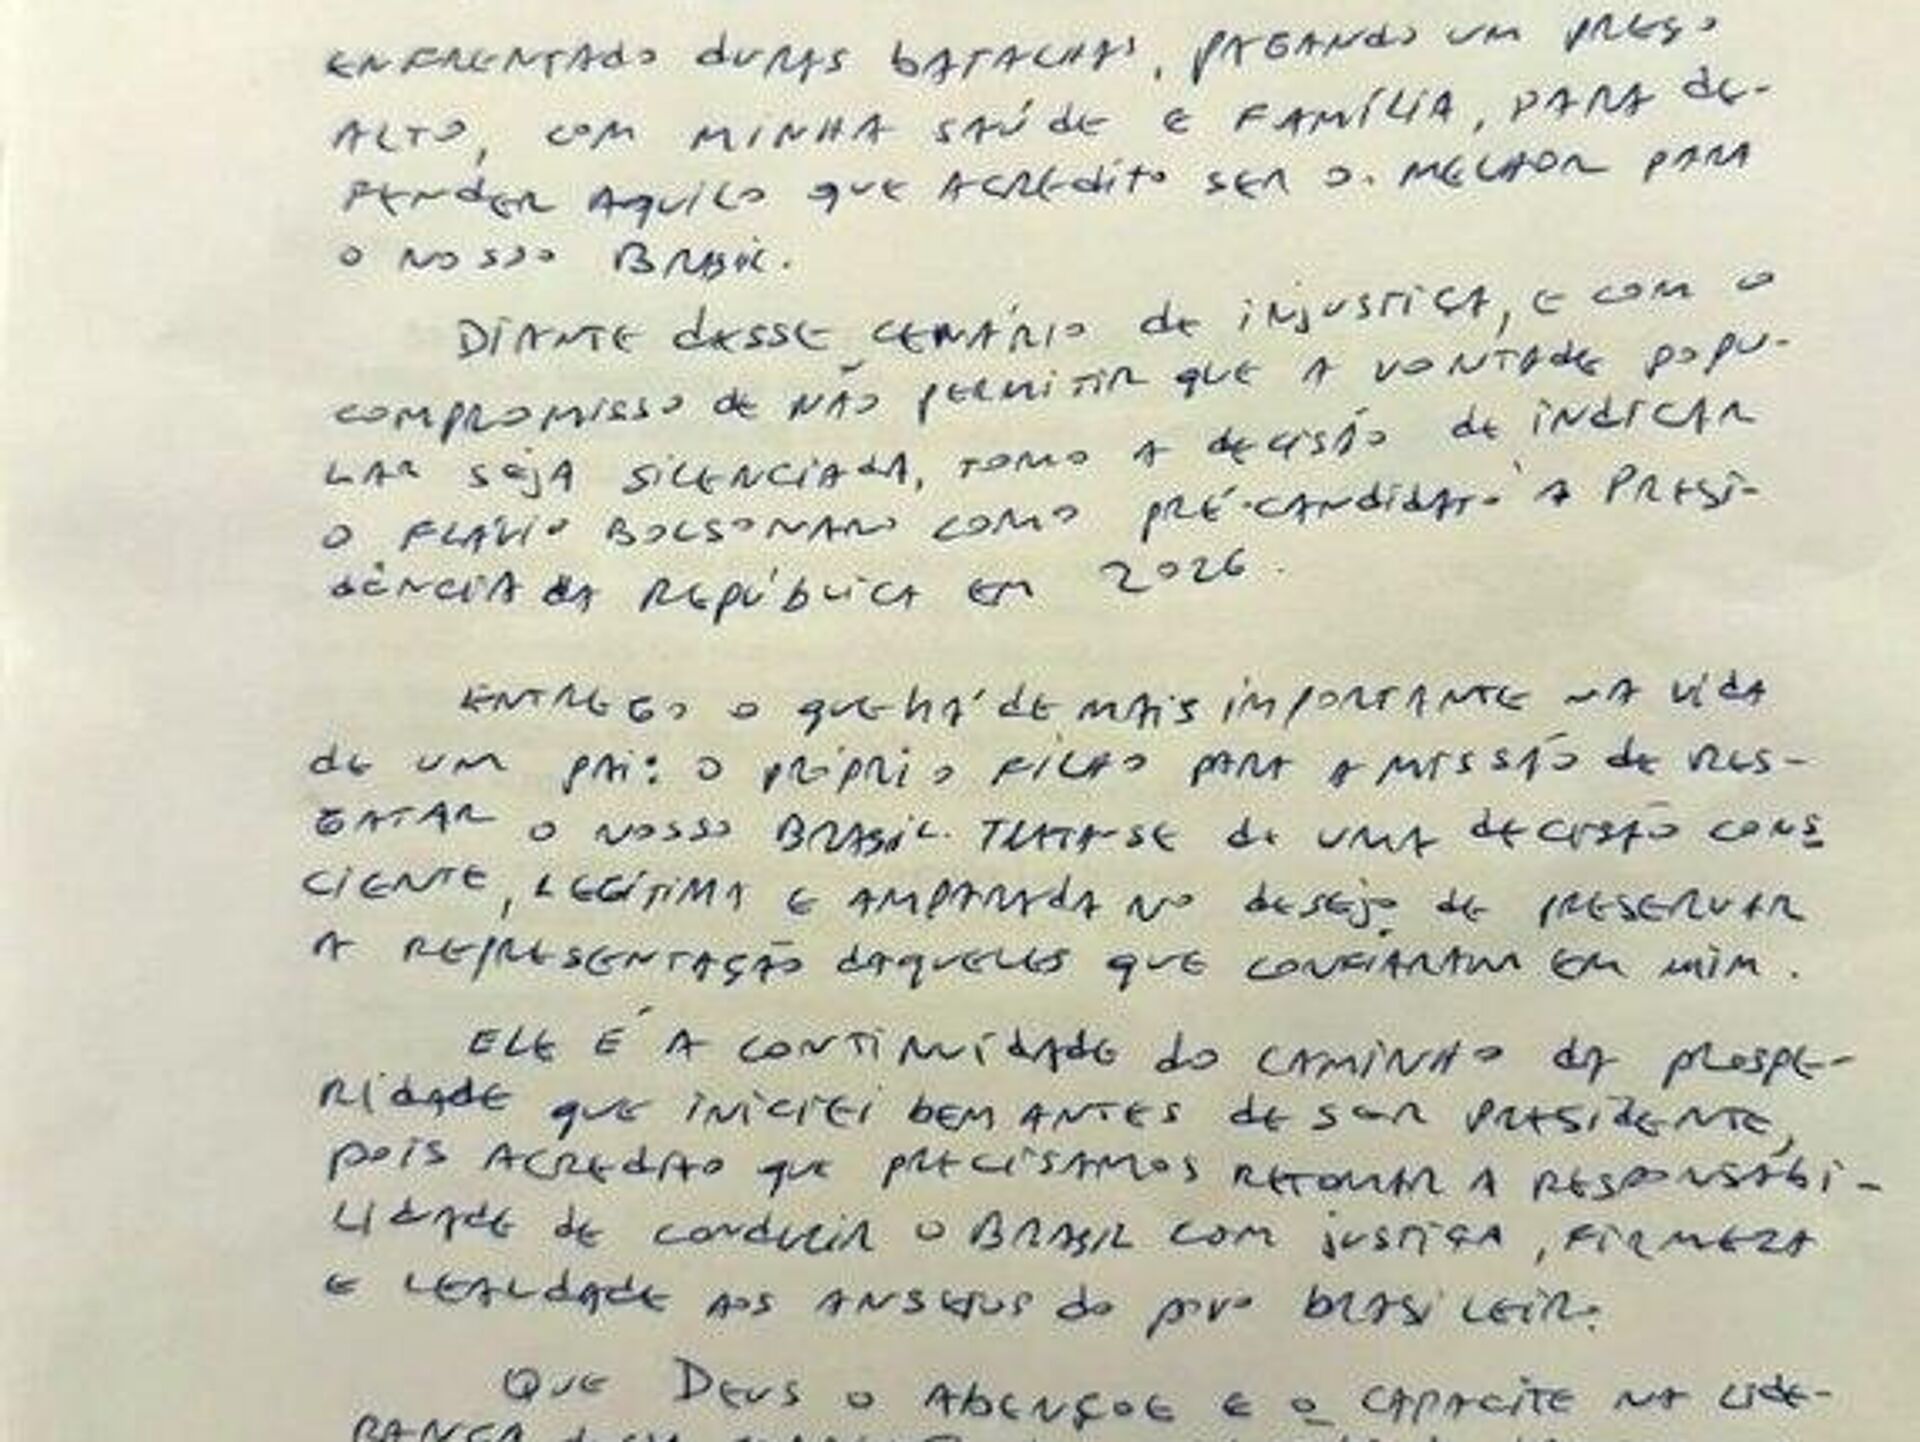 ENFRENTADO DURAS BATALHAS, PAGANDO UM PREÇO
ALTO, COM MINHA SAÚDE E FAMÍLIA, PARA DE-
FENDER AQUILO QUE ACREDITO SER O. MELHOR PARA
O NOSSO BRASIL.
DIANTE DESSE CENÁRIO DE INJUSTIÇA, E COM O
COMPROMISSO DE NÃO PERMITIR QUE A VONTADE POPU-
LAR SEJA SILENCIADA, TOMO A DECISÃO DE INDICAR
O FLÁVIO BOLSONARO COMO PRÉ-CANDIDATO À PRESI-
DÊNCIA DA REPÚBLICA EM 2026.
ENTREGO O QUE HÁ DE MAIS IMPORTANTE NA VIDA
DE UM PAI: O PRÓPRIO FILHO PARA A MISSÃO DE RES-
GATAR O NOSSO BRASIL. TRATA-SE DE UMA DECISÃO CONS
CIENTE, LEGÍTIMA E AMPARADA NO DESEJO DE PRESERVAR
A REPRESENTAÇÃO DAQUELES QUE CONFIARAM EM MIM.
ELE É A CONTINUIDADE DO CAMINHO DA PROSPE-
RIDADE QUE INICIEI BEM ANTES DE SER PRESIDENTE,
POIS ACREDITO QUE PRECISAMOS RETOMAR A RESPONSABI-
LIDADE DE CONDUZIR O BRASIL COM JUSTIÇA, FIRMEZA
E LEALDADE AOS ANSEIOS DO POVO BRASILEIRO.
QUE DEUS O ABENÇOE E O CAPACITE NA LIDE-
RANÇA